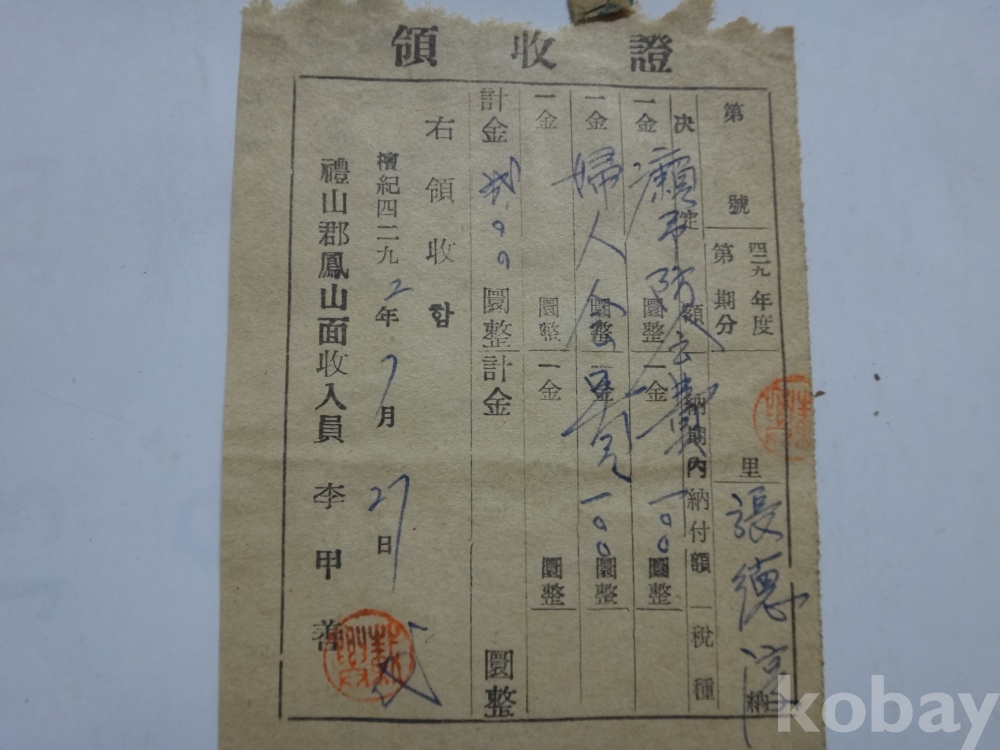 領收證
第 號
四二九 年度
第 期分
里 張德 納
決定額 納期內納付額 稅種
一金 圜整 一金 一〇〇 圜整
一金 婦人会 圜整 一金 一〇〇 圜整
一金 圜整 一金 圜整
計金 貳〇〇 圜整 計金 圜整
右領收함
檀紀四二九2年7月27日
禮山郡鳳山面收入員 李甲善
kobay